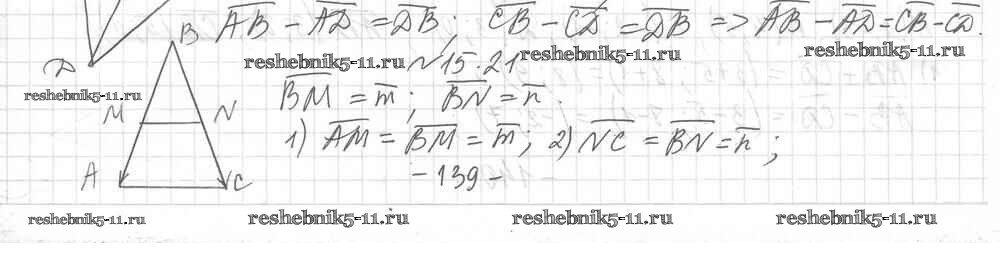 AB - AD = DB; CB - CD = DB => AB - AD = CB - CD.
reshebnik5-11.ru reshebnik5-11.ru
D B №15.21
reshebnik5-11.ru
BM = m; BN = n.
M N
1) AM = BM = m; 2) NC = BN = n;
A C
- 139 -
reshebnik5-11.ru reshebnik5-11.ru reshebnik5-11.ru reshebnik5-11.ru